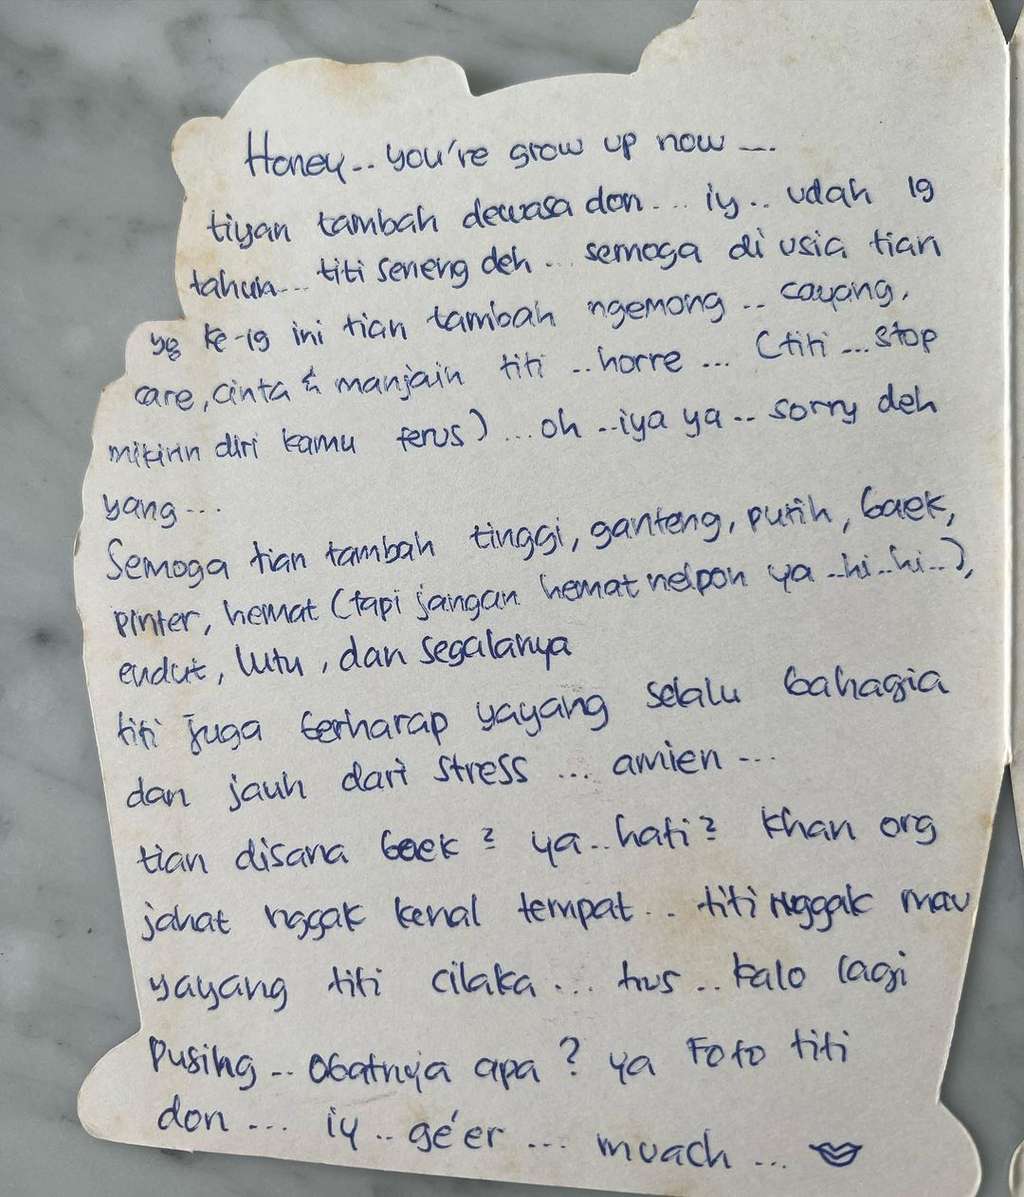 Honey.. you're grow up now ....
tiyan tambah dewasa don.... iy.. udah 19
tahun.... titi seneng deh... semoga di usia tian
yg ke-19 ini tian tambah ngemong .. cayang,
care, cinta & manjain titi ..horre ... (titi ... stop
mikirin diri kamu terus) ...oh ..iya ya.. sorry deh
yang...
Semoga tian tambah tinggi, ganteng, putih, baek,
pinter, hemat (tapi jangan hemat nelpon ya ..hi..hi..),
endut, lutu, dan segalanya
titi juga berharap yayang selalu bahagia
dan jauh dari stress ... amien ...
tian disana baek² ya..hati² khan org
jahat nggak kenal tempat.. titi nggak mau
yayang titi cilaka... trus .. kalo lagi
pusing .. obatnya apa? ya Foto titi
don ... iy.. ge'er ... muach ...